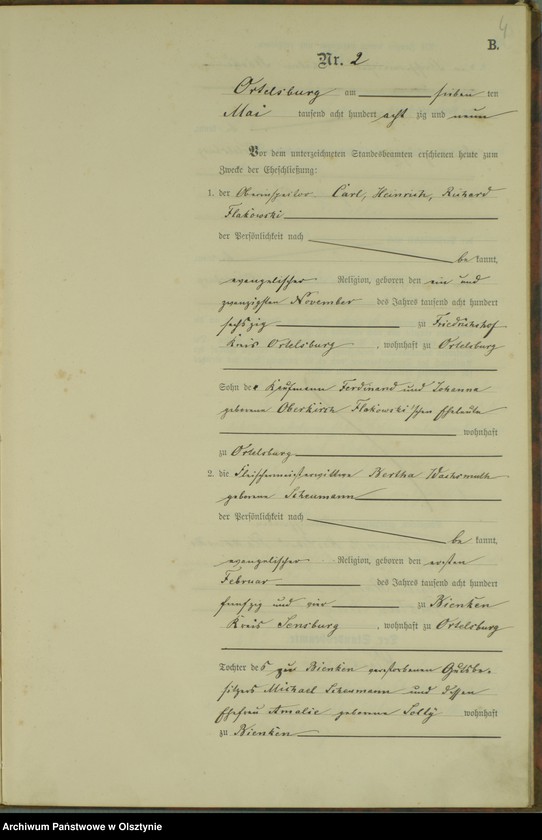 4
B.
Nr. 2
Ortelsburg am sieben ten
Mai tausend acht hundert acht zig und neun
Vor dem unterzeichneten Standesbeamten erschienen heute zum
Zwecke der Eheschließung:
1. der Oberinspektor Carl, Heinrich, Richard
Flakowski
der Persönlichkeit nach
be kannt,
evangelischer Religion, geboren den ein und
zwanzigsten November des Jahres tausend acht hundert
sechszig zu Friedrichshof
Kreis Ortelsburg , wohnhaft zu Ortelsburg
Sohn der Kaufmann Ferdinand und Johanna
geborene Oberkirch Flakowski'schen Eheleute
wohnhaft
zu Ortelsburg
2. die Fleischermeisterwittwe Bertha Wachsmuth
geborene Scheumann
der Persönlichkeit nach
be kannt,
evangelischer Religion, geboren den ersten
Februar des Jahres tausend acht hundert
fünfzig und vier zu Bienken
Kreis Sensburg , wohnhaft zu Ortelsburg
Tochter des zu Bienken verstorbenen Gutsbe-
sitzers Michael Scheumann und dessen
Ehefrau Amalie geborene wohnhaft
zu Bienken
Archiwum Państwowe w Olsztynie